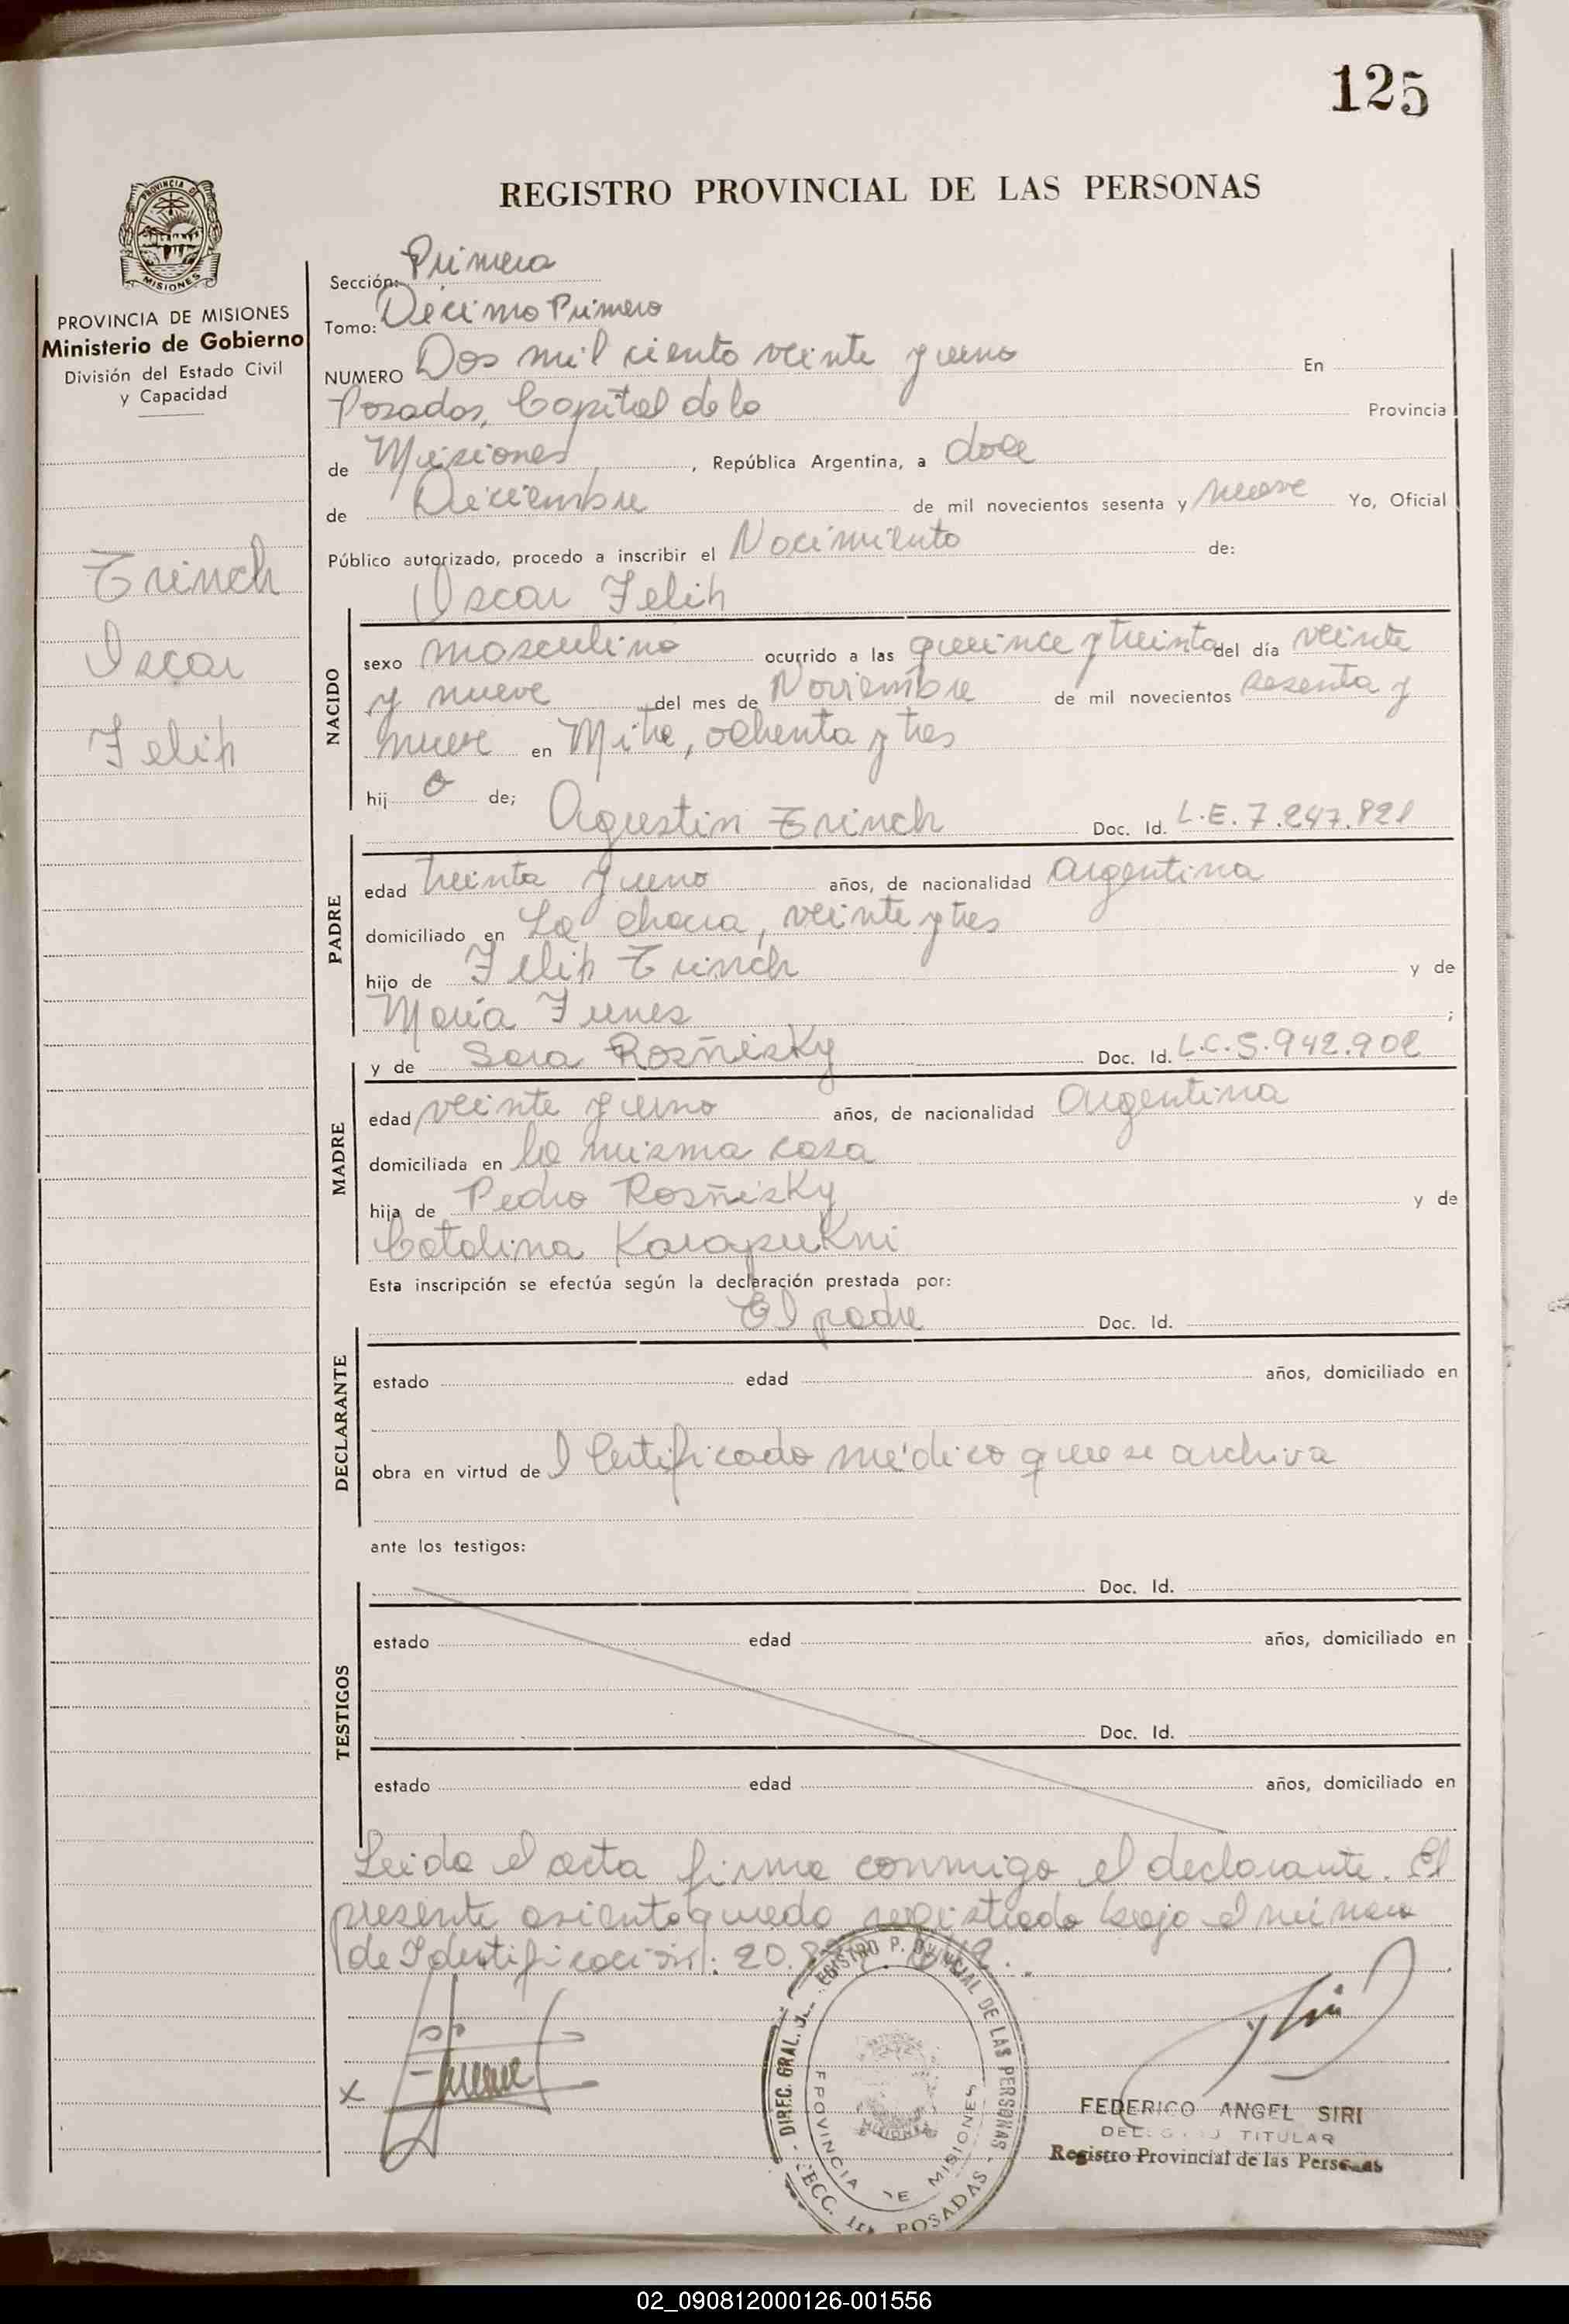 125
REGISTRO PROVINCIAL DE LAS PERSONAS
PROVINCIA DE
MISIONES
PROVINCIA DE MISIONES
Ministerio de Gobierno
División del Estado Civil
y Capacidad
Erinch
Oscar
Felip
Sección: Primera
Tomo: Décimo Primero
NUMERO Dos mil ciento veinte y uno En
Posadas, Capital de la Provincia
de Misiones, República Argentina, a doce
de Diciembre de mil novecientos sesenta y nueve Yo, Oficial
Público autorizado, procedo a inscribir el Nacimiento de:
Oscar Felip
NACIDO
sexo masculino ocurrido a las quince y treinta del día veinte
y nueve del mes de Noviembre de mil novecientos sesenta y
nueve en Mitre, ochenta y tres
hij o de;
Agustin Erinch Doc. Id. L.E. 7.247.821
PADRE
edad treinta y uno años, de nacionalidad Argentina
domiciliado en La chacra, veinte y tres
hijo de Felip Erinch y de
María Funes ;
y de Sara Rosñisky Doc. Id. L.C. 5.942.902
MADRE
edad veinte y uno años, de nacionalidad Argentina
domiciliada en la misma casa
hija de Pedro Rosñisky y de
Catalina Karapukni
Esta inscripción se efectúa según la declaración prestada por:
El padre Doc. Id.
DECLARANTE
estado edad años, domiciliado en
obra en virtud de l Certificado médico que se archiva
ante los testigos:
Doc. Id.
TESTIGOS
estado edad años, domiciliado en
Doc. Id.
estado edad años, domiciliado en
Leida el acta firma conmigo el declarante. El
presente asiento queda registrado bajo el número
de Identificación: 20.
REGISTRO PROVINCIAL DE LAS PERSONAS
DIREC. GRAL.
PROVINCIA DE MISIONES
SECC. POSADAS
x
FEDERICO ANGEL SIRI
TITULAR
Registro Provincial de las Personas
02_090812000126-001556